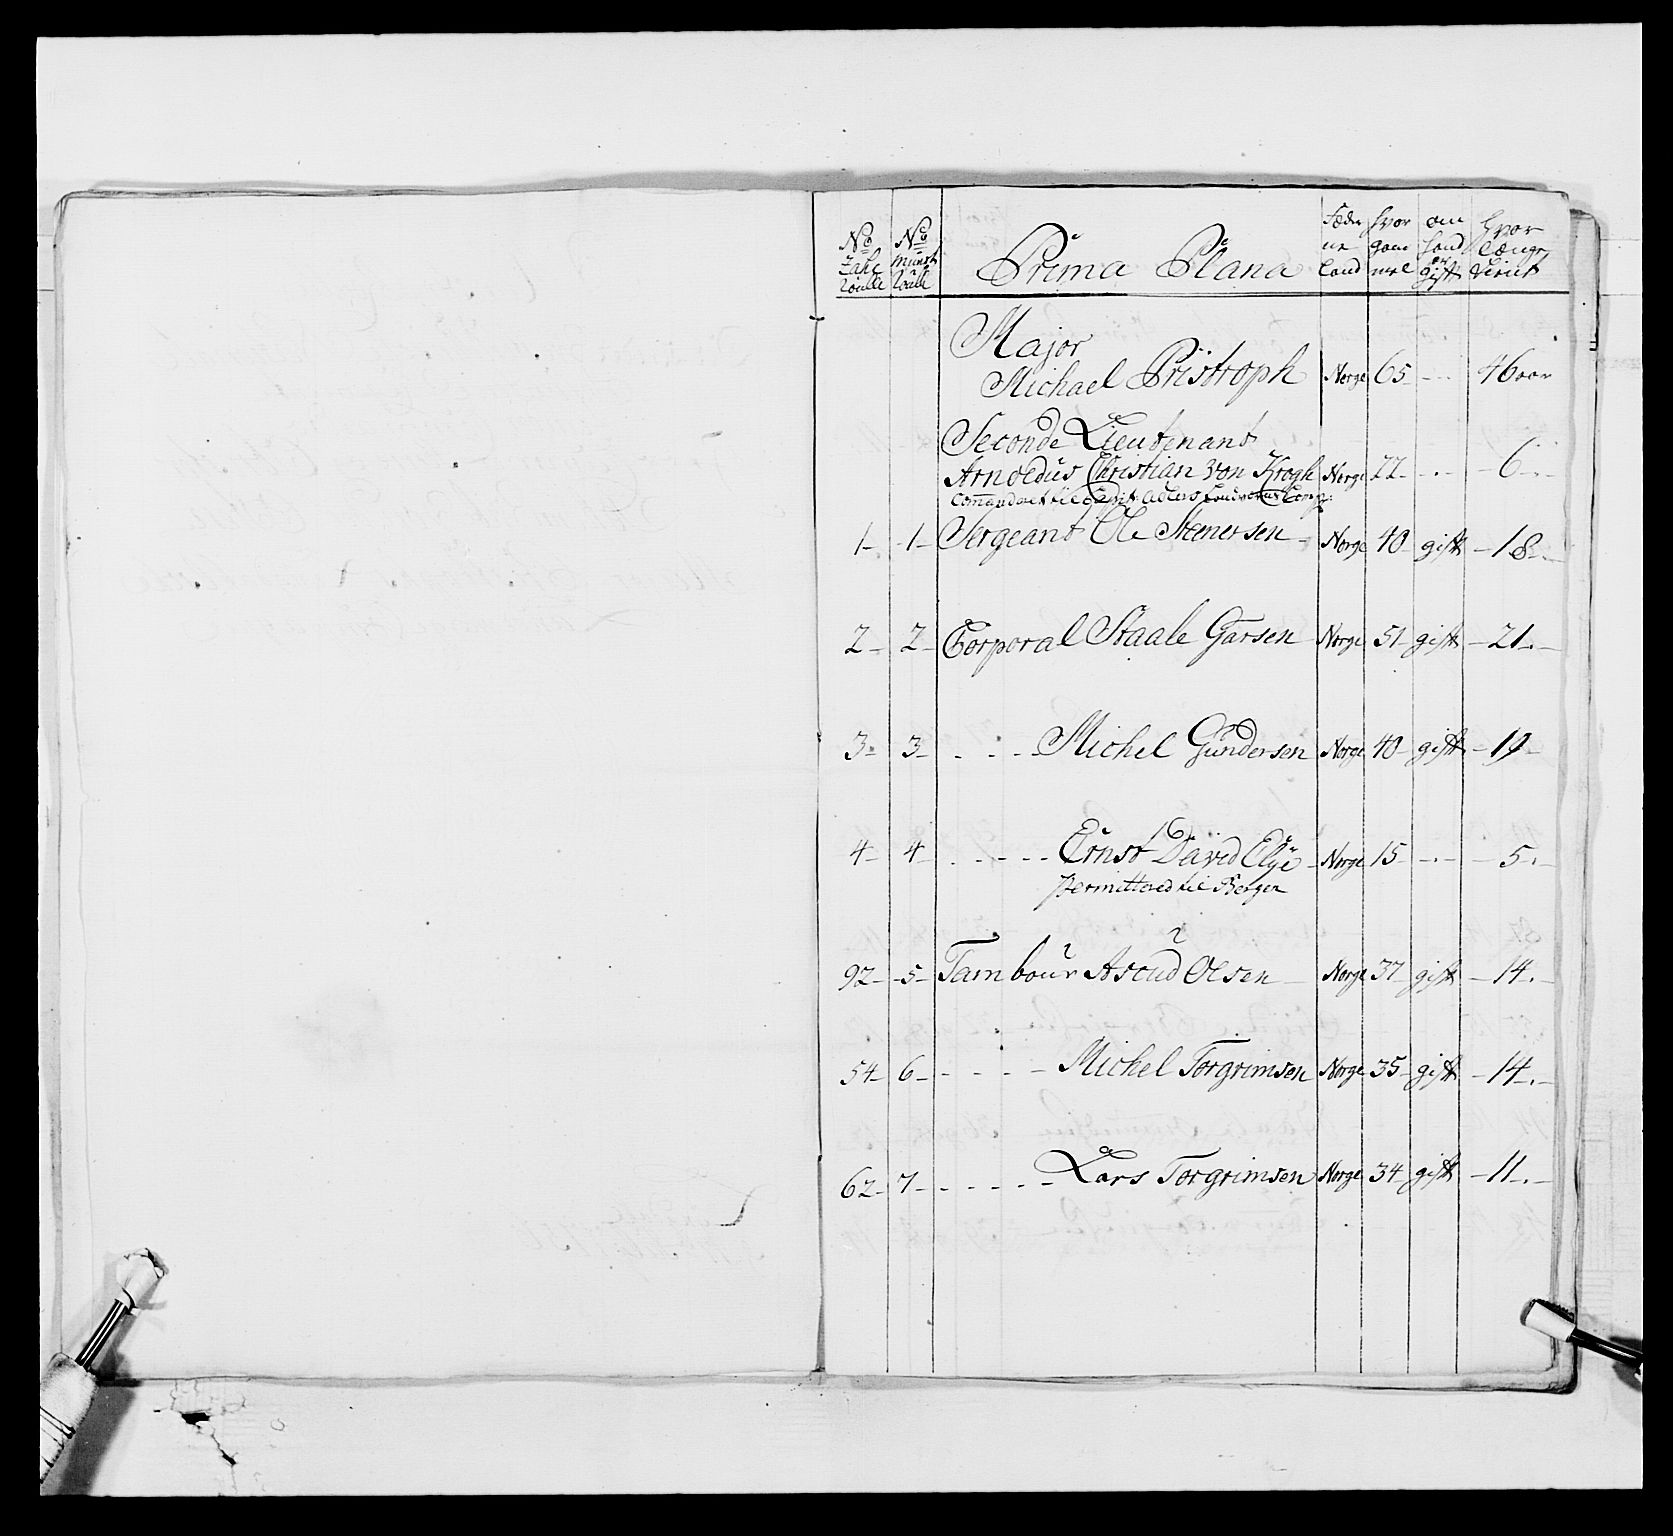 No Zahl Roulle | No Munst Roulle | Prima Plana | Fæder ne Land | hvor gam mel | om hand er gift | hvor Længe tient
Major
Michael Pristroph | Norge | 65 - | - - - | 46 aar
Seconde Lieutenant
Arnoldus Christian von Krogh | Norge | 22 - | - - - | - 6 - -
Commanderet til Capit: Adlers Landværns Comp:
1 - | - 1 - | Sergeant Ole Stenersen - | Norge | 40 - | gift | - 18 - -
2 - | 2 - | Corporal Staale Garsen | Norge | 51 - | gift | - 21 - -
3 - | 3 - | - - - Michel Gundersen | Norge | 40 - | gift | - 19 -
4 - | 4 - | - - - - Ernst David Elye - | Norge | 15 - | - - - | - 5 - -
Permittered til Bergen
92 - | - 5 - | Tambour Aslud Olsen - | Norge | 37 | gift | - 14 - -
54 - | 6 - | - - - - Michel Torgrimsen | Norge | 35 - | gift | - 14 - -
62 - | 7 - | - - - - - Lars Torgrimsen | Norge | 34 | gift | - 11 - -